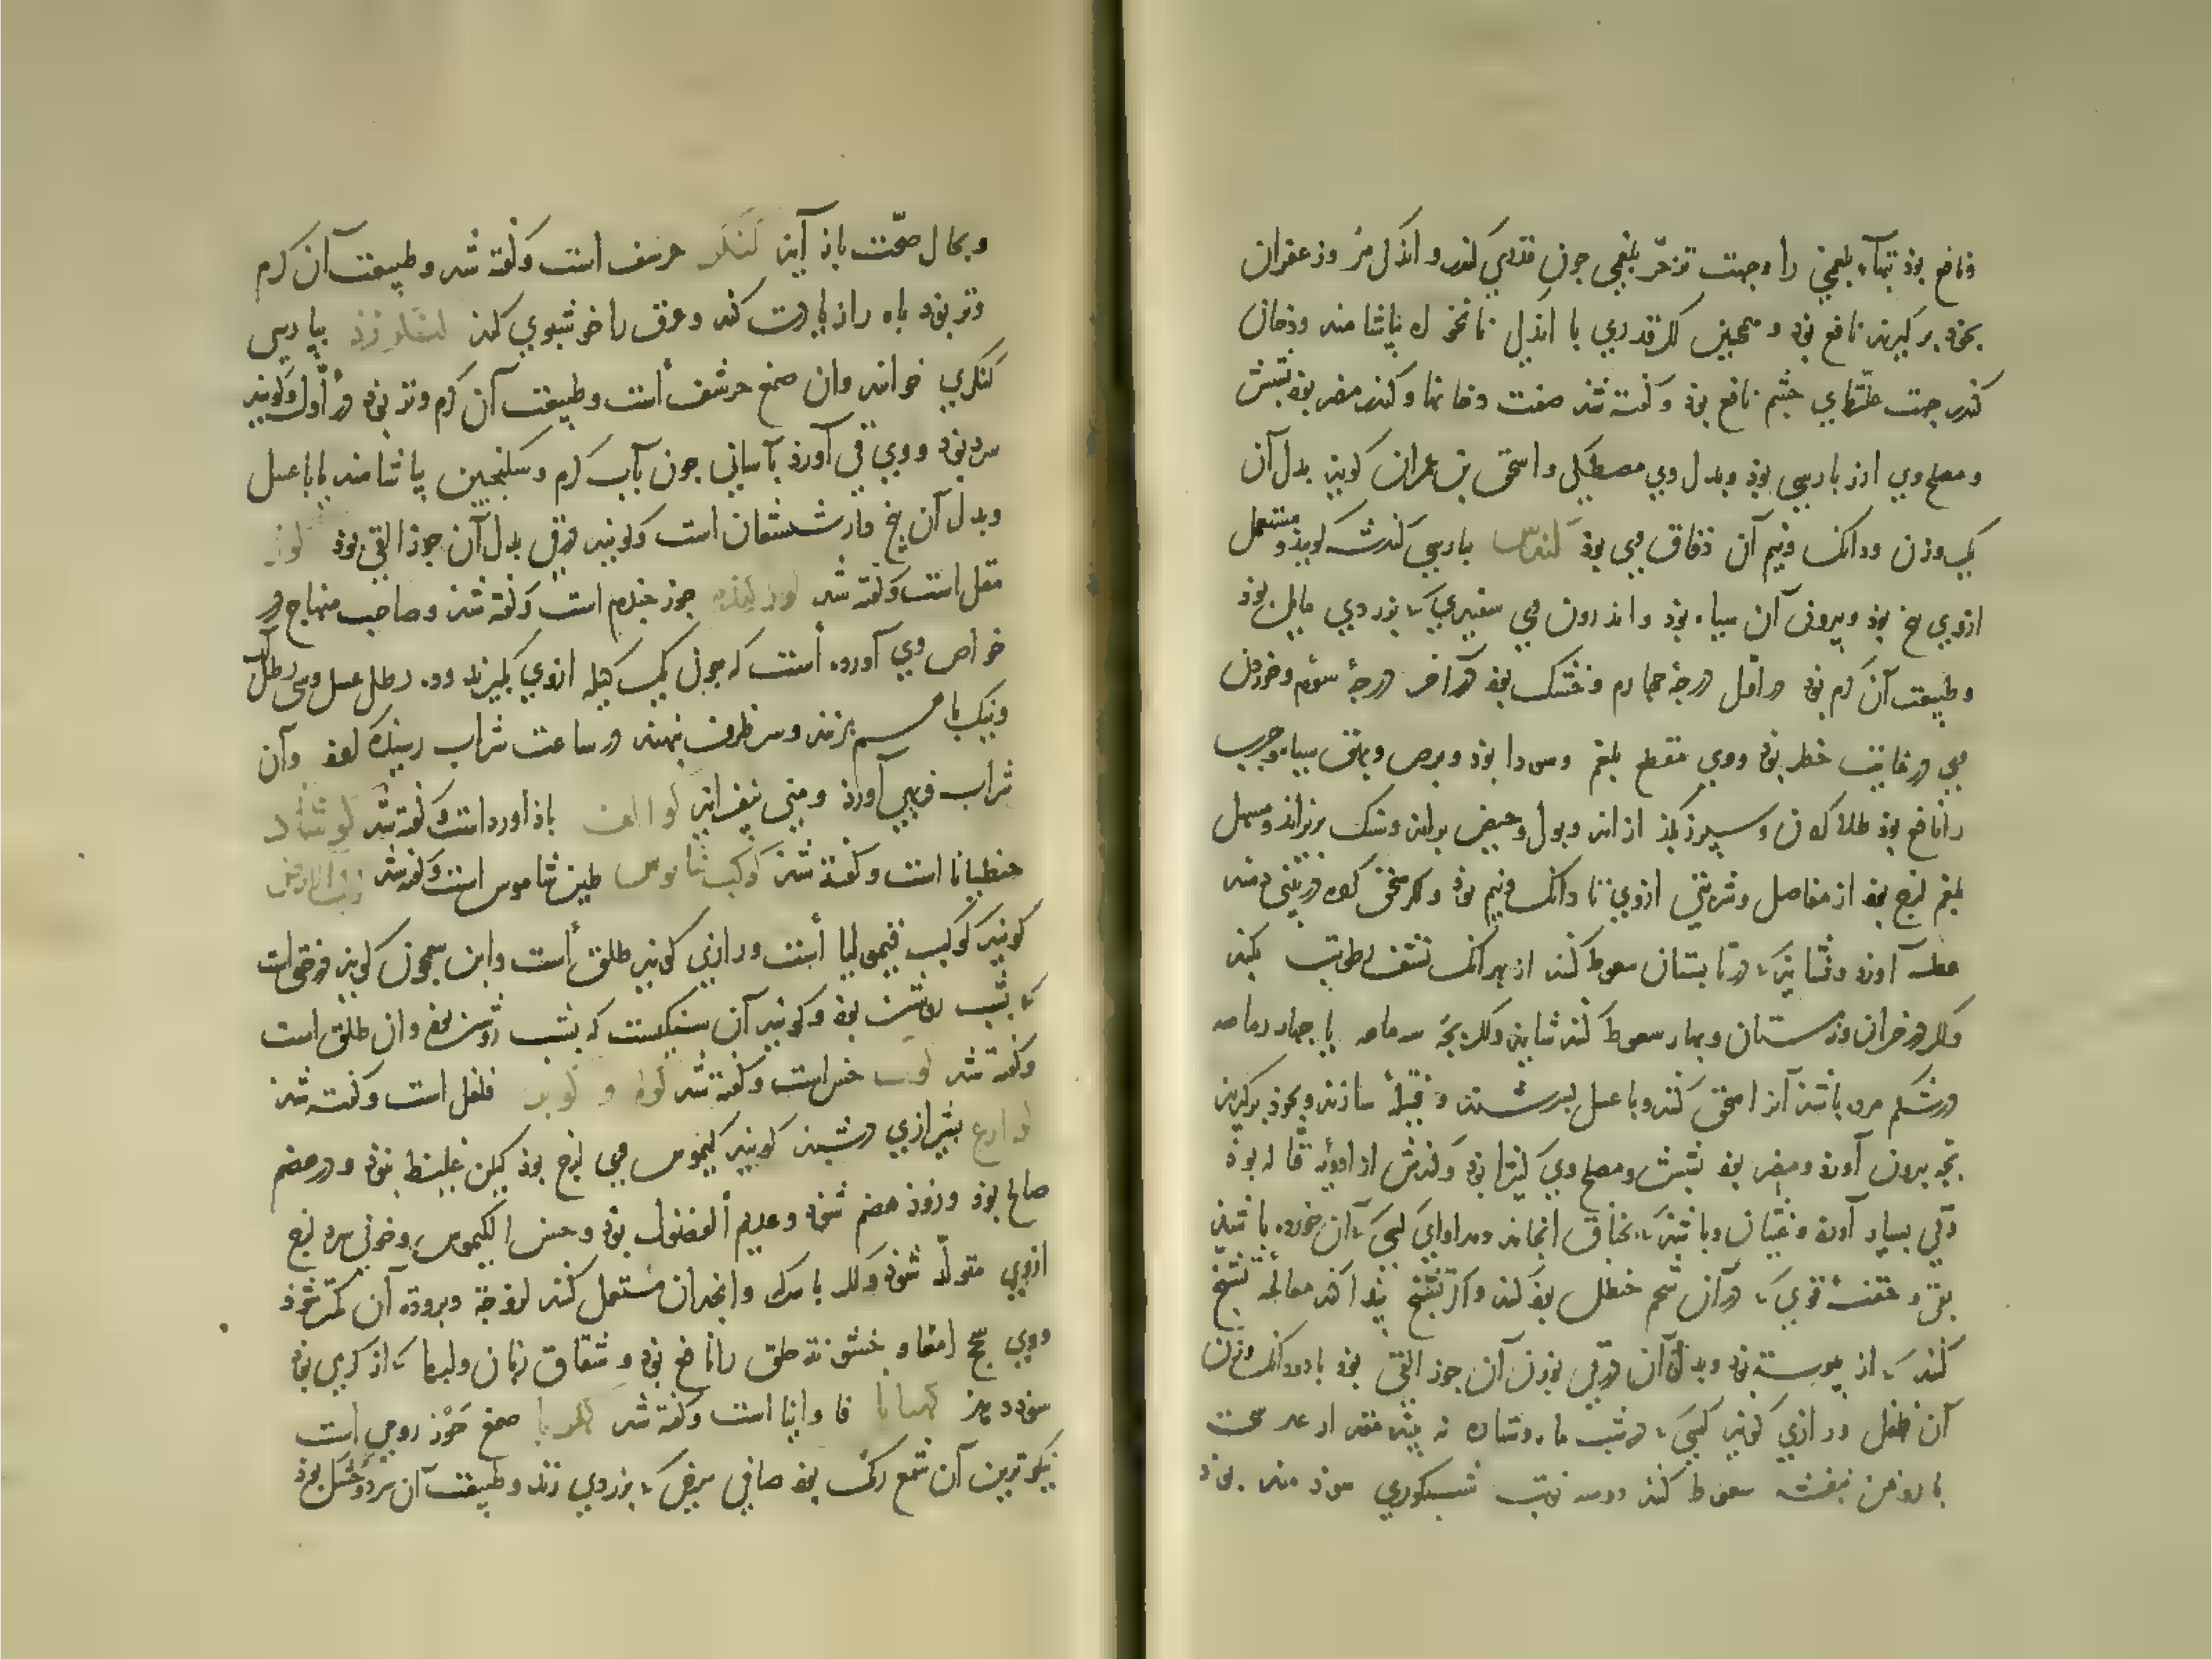 ونافع بوذ تبهاء بلغمی را وجهت تزحّر بلغمی جون قدری کندر و اندکی مر وزعفران
بخوذ برگیرند نافع بوذ و همچنین اگر قدری با اندکی نانخواه بیاشامند ودخان
کندر جهت علتهای جشم نافع بوذ وگفته شذ صفت دخانها وکندر مضر بوذ بشش
ومصلح وی ارز بارسی بوذ وبدل وی مصطکی واسحق بن عمران کویذ بدل آن
یک وزن ودانک ونیم آن دقاق وی بوذ کندس ببارسی کندش کویند ومستعمل
ازوی بیخ بوذ وبیرون آن سیاه بوذ واندرون وی سفیدی که بزردی مایل بوذ
وطبیعت آن گرم بوذ در اول درجۀ جهارم وخشک بوذ در آخر درجۀ سوم وخوردن
وی در غایت خطر بوذ ووی مقطع بلغم وسودا بوذ وبرص وبهق سیاه وجرب
را نافع بوذ طلا کردن وسپرز بگذازاند وبول وحیض براند وسنگ بریزاند ومسهل
بلغم لزج بوذ از مفاصل وشربتی ازوی تا دانک ونیم بوذ واگر سحق کرده در بینی دمند
عطسه آورد ونشایذ که در تابستان سعوط کنند از بهر آنک نشف رطوبت بکند
واگر در خزان وزمستان وبهار سعوط کنند شاید واگر بچه سه ماهه یا چهار ماهه
در شکم مرده باشذ آنرا سحق کنند وبا عسل بسرشند وفتیله سازند وبخوذ برگیرند
بجه بیرون آورد ومضر بوذ بشش ومصلح وی کثیرا بوذ وکندش از ادویه قتاله بوذ
وقی بسیار آورد وغثیان وباشد که بخناق انجامد ومداوای کسی که آن خورده باشد
بقی وحقنه قوی که در آن شحم حنظل بوذ کنند واگر تشنج پیدا کند معالجه تشنج
کنند که از یبوست بوذ وبدل آن در قی بوزن آن جوز القی بوذ با دودانک وزن
آن فلفل ورازی کویذ کسی که در شب ماه وستاره نه بیند مقدار عدسی
با روغن بنفشه سعوط کند دوسه نوبت شبکوری سوذمند بوذ
وبحال صحت باز آید کنکر حرشف است وگفته شد وطبیعت آن گرم
وتر بوذ باه را زیادت کند وعرق را خوشبوی کند کنکرزد ببارسی
کنکری خوانند وآن صمغ حرشف است وطبیعت آن گرم وتر بوذ در اول وگویند
سرد بوذ ووی قی آورذ بآسانی جون بآب گرم وسکنجبین بیاشامند یا با عسل
وبدل آن بیخ است وگویند در قی بدل آن جوز القی بوذ کور
مقل است وگفته شد کور کندم جوز جندم است وگفته شذ وصاحب منهاج در
خواص وی آورده است که جون یک کیله ازوی بگیرند وده رطل عسل وسی رطل آب
ونیک باهم بزنند وسر ظرف بنهند در ساعت شراب رسیده بوذ وآن
شراب فربهی آورذ ومنی بیفزاید باذاورد است وگفته شد کوشاد
جنطیانا است وگفته شذ کوکب شاموس طین شاموس است وگفته شد کوکب الارض
کویند کوکب قیمولیا است ورازی کویذ طلق است وابن سمجون کویذ درختی است
که بشب روشن بوذ وکویند آن سنگیست که بشب روشن بوذ وآن طلق است
وگفته شد خس است وگفته شد فلفل است وگفته شذ
کوارع بشیرازی کویند کیموس وی لزج بوذ لیکن غلیظ نبود ودر هضم
صالح بوذ وزوذ هضم شوذ وعدیم الفضول بوذ وحسن الکیموس وخونی سرد لزج
ازوی متولد شوذ واگر با سرکه وانجدان مستعمل کنند لزوجة وبرودة آن کمتر شوذ
ووی سحج امعا وخشونة حلق را نافع بوذ وشقاق زبان ولبها که از گرمی بوذ
سوذ دهذ کهیانا فاوانیا است وگفته شد کهربا صمغ حَوْر رومی است
نیکوترین آن شمع رنگ بوذ صافی که بزردی زند وطبیعت آن سرد وخشک بوذ